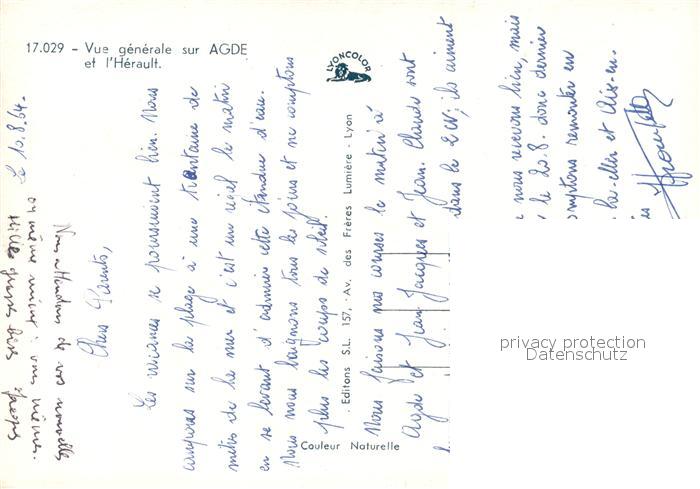 17.029 - Vue générale sur AGDE
et l'Hérault.
LYONCOLOR
Editons S.L. 157, Av. des Frères Lumière - Lyon
Couleur Naturelle
Le 10.8.64.
Chers Parents,
Les vacances se poursuivent bien. Nous
campons sur la plage à une trentaine de
mètres de la mer et c'est un régal le matin
en se levant d'admirer cette étendue d'eau.
Nous nous baignons tous les jours et ne comptons
plus les coups de soleil.
Nous faisons nos courses le matin à
Agde et Jean-Jacques et Jean-Claude sont
dans la 2 CV; ils aiment
nous recevons bien, mais
le 20.8. donc dernier
omptons remonter en
et Aix-en.
Nous attendons de vos nouvelles
privacy protection
Datenschutz